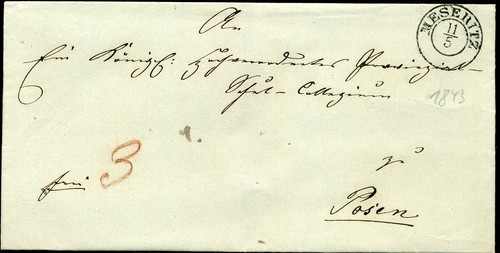 An
MESERITZ
11/5
Ein Königl: Hochverordnetes Provinzial-
Schul-Collegium
1843
zu
frei 3
Posen